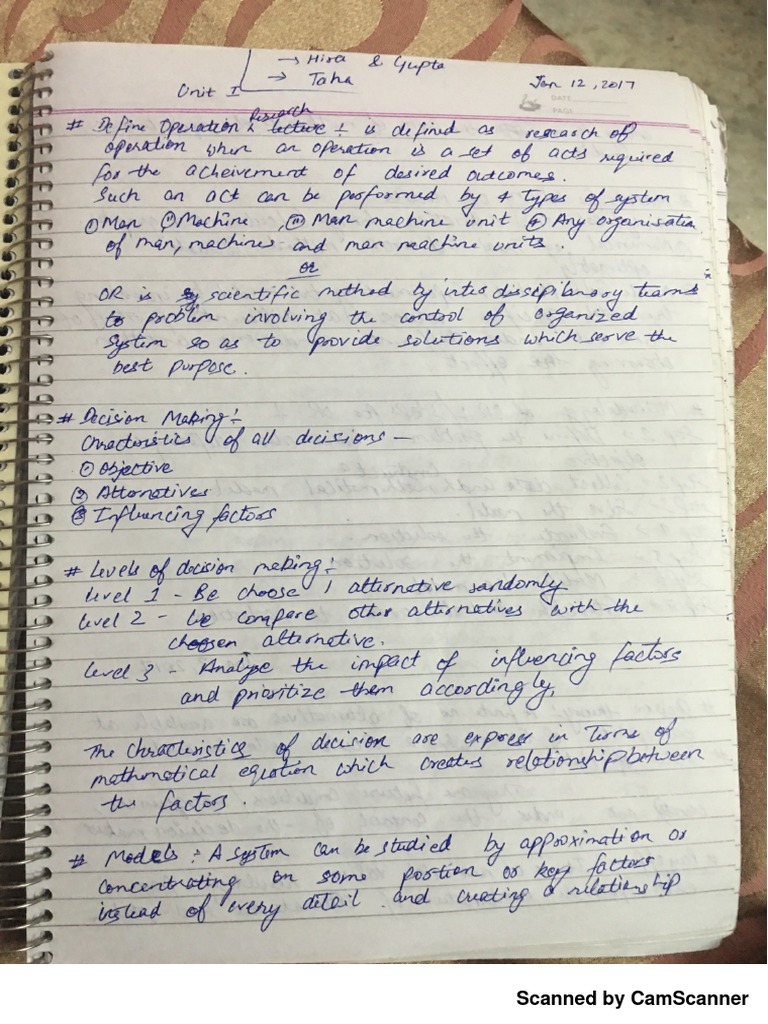 → Hira & Gupta
→ Taha
Jan 12, 2017
Unit I
DATE
PAGE
Research
# Define Operation & lecture :- is defined as research of
operation when an operation is a set of acts required
for the acheivement of desired outcomes.
Such an act can be performed by 4 types of system
① Man ② Machine, ③ Man machine unit ④ Any organisation
of man, machines and man machine units.
or
OR is scientific method by inter dissipilanary teams
to problem involving the control of organized
system so as to provide solutions which serve the
best purpose.
# Decision Making :-
Chracteristics of all decisions —
① Objective
② Alternatives
③ Influencing factors
# Levels of decision making :-
Level 1 - Be choose 1 alternative randomly
Level 2 - We compare other alternatives with the
choosen alternative.
Level 3 - Analyse the impact of influencing factors
and prioritize them accordingly.
The chracteristics of decision are express in Terms of
mathematical equation which creates relationship between
the factors.
# Models : A system can be studied by approximation or
concentrating on some portion or key factors
instead of every detail. and creating a relationship
Scanned by CamScanner